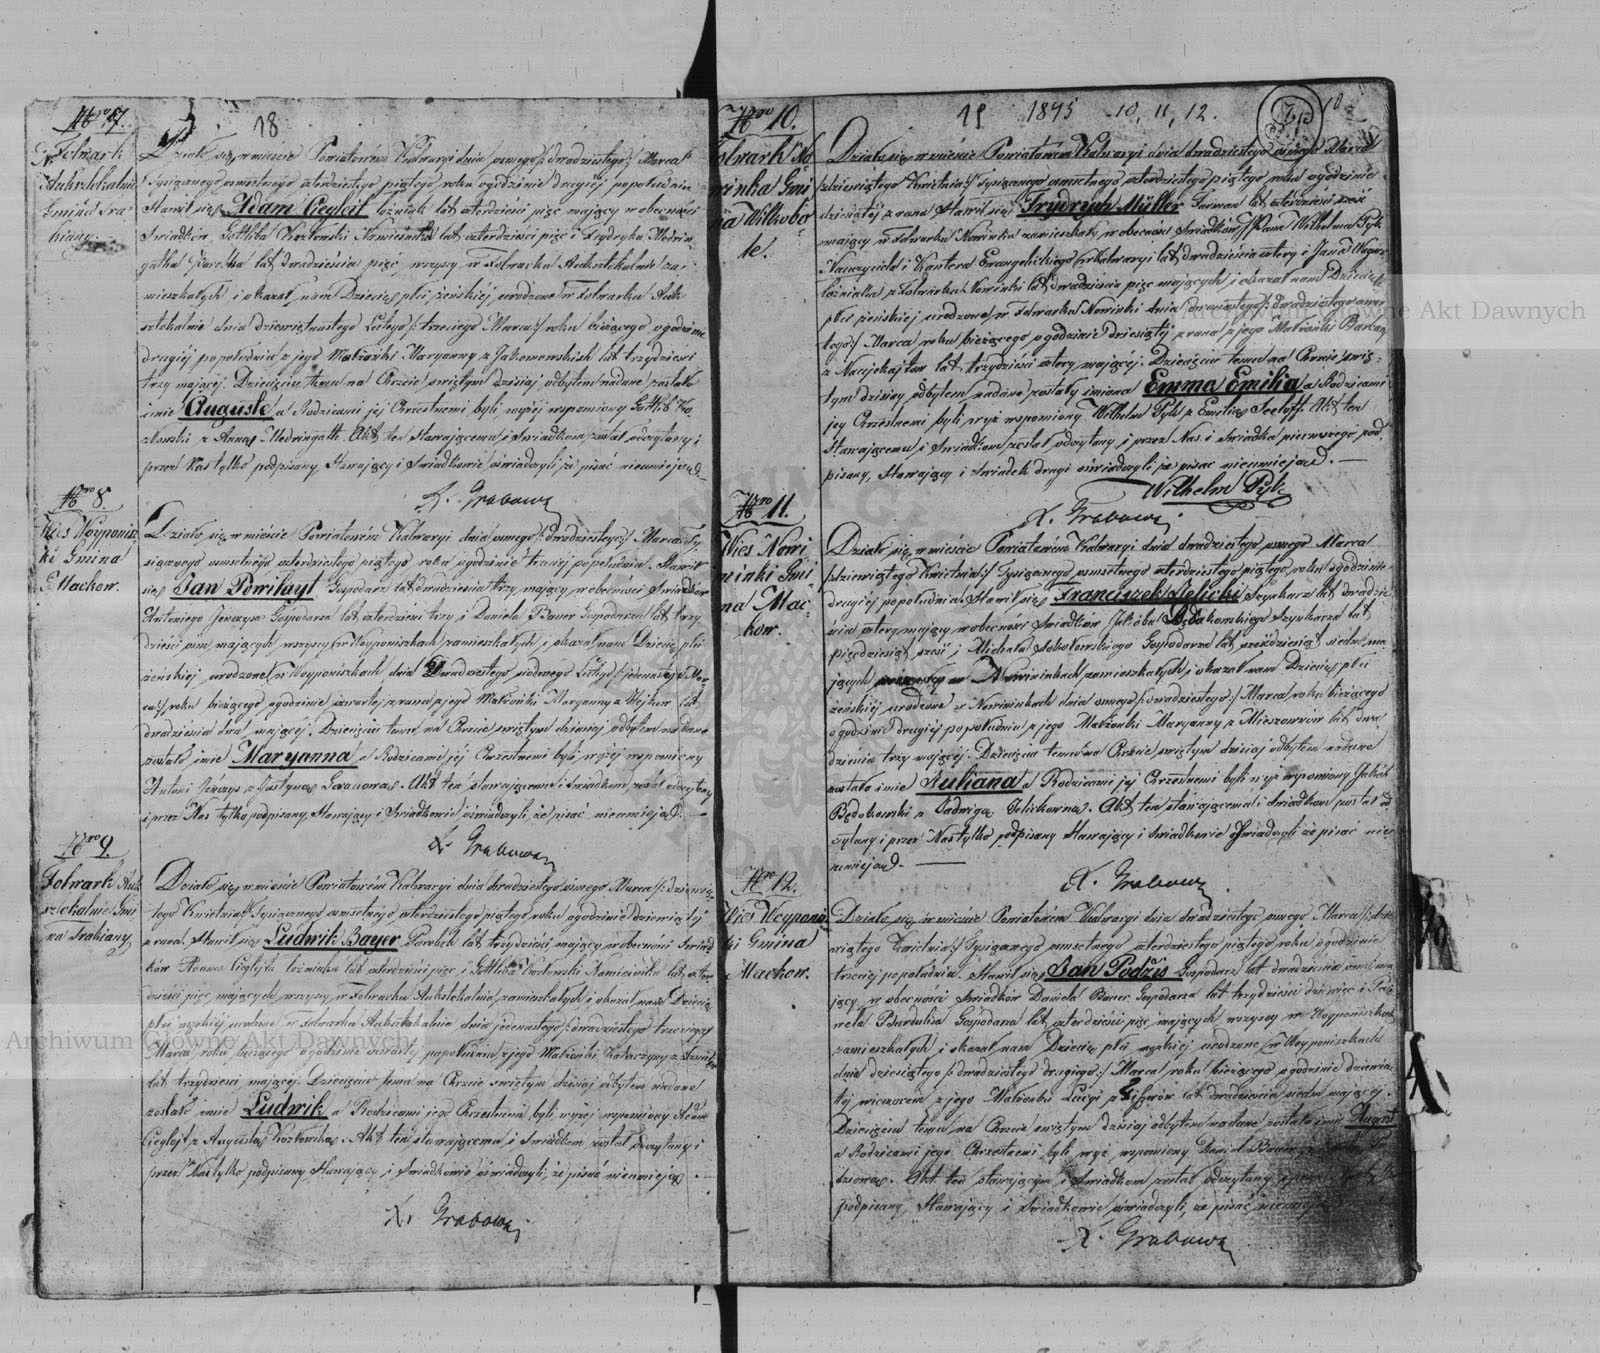 18
Nro 7.
Folwark
Auksztokalnie
Gmina Tra-
kiany
Działo się w mieście Powiatowém Kalwaryi dnia ósmego /: dwudziestego :/ Marca
Tysiącznego ośmsetnego czterdziestego piątego roku o godzinie drugiéj popołudniu
Stawił się Adam Cieglejt lat czterdzieści pięć mający w obecności
Świadków, Gottliba Kozłowski Namiestnika lat czterdzieści pięć i Frydryka
Parobka lat dwadzieścia pięć, wszyscy w Folwarku Auksztokalnie za-
mieszkałych i okazał nam Dziecię płci żeńskiéj urodzone w Folwarku Auk-
sztokalnie dnia dziewiętnastego Lutego /: trzeciego Marca :/ roku bieżącego o godzinie
drugiéj popołudniu z jego Małżonki Maryanny z lat trzydzieści
trzy mającéj. Dziecięciu temu na Chrzcie świętym dzisiaj odbytem nadane zostało
imie Auguste a Rodzicami jéj Chrzestnemi byli wyżéj wspomniony Gottlib Ko-
złowski z Anną Akt ten Stawającemu i Świadkom został odczytany i
przez Nas tylko podpisany, Stawający i Świadkowie oświadczyli iż pisać nieumieją.
X. Grabowski
Nro 8.
Wieś Woyponisz-
ki Gmina
Mackow.
Działo się w mieście Powiatowém Kalwaryi dnia ósmego /: dwudziestego :/ Marca Ty-
siącznego ośmsetnego czterdziestego piątego roku o godzinie trzeciéj popołudniu. Stawił
się Jan Powilayt Gospodarz lat dwadzieścia trzy mający, w obecności Świadków
Antoniego Gospodarza lat czterdzieści trzy i Daniela Bauer Gospodarza lat trzy-
dzieści ośm mających wszyscy w Woyponiszkach zamieszkałych i okazał nam Dziecię płci
żeńskiéj urodzone w Woyponiszkach dnia Dwudziestego siódmego Lutego /: jedenastego Mar-
ca :/ roku bieżącego o godzinie czwartéj z rana z jego Małżonki Maryanny z lat
dwadzieścia dwa mającéj. Dziecięciu temu na Chrzcie świętym dzisiaj odbytem nadane
zostało imie Maryanna a Rodzicami jéj Chrzestnemi byli wyżéj wspomniony
Antoni z Justyną Akt ten stawającemu i Świadkom został odczytany
i przez Nas tylko podpisany, Stawający i Świadkowie oświadczyli, że pisać nieumieją.
X. Grabowski
Nro 9.
Folwark Auk-
sztokalnie Gmi-
na Trakiany
Działo się w mieście Powiatowém Kalwaryi dnia dwudziestego ósmego Marca /: dziewią-
tego Kwietnia :/ Tysiącznego ośmsetnego czterdziestego piątego roku o godzinie Dziewiątéj
z rana. Stawił się Ludwik Bayer Parobek lat trzydzieści mający w obecności Świad-
ków Adama Cieglejta lat czterdzieści pięć i Gottliba Kozłowski Namiestnika lat czter-
dzieści pięć mających, wszyscy w Folwarku Auksztokalnie zamieszkałych i okazał nam Dziecię
płci męzkiéj urodzone w Folwarku Auksztokalnie dnia jedenastego /: dwudziestego trzeciego :/
Marca roku bieżącego o godzinie czwartéj popołudniu z jego Małżonki Katarzyny z
lat trzydzieści mającéj. Dziecięciu temu na Chrzcie świętym dzisiaj odbytem nadane
zostało imie Ludwik a Rodzicami jego Chrzestnemi byli wyżéj wspomniony Adam
Cieglejt z Augustą Kozłowską. Akt ten stawającemu i Świadkom został odczytany i
przez Nas tylko podpisany, Stawający i Świadkowie oświadczyli, że pisać nieumieją.
X. Grabowski
19 1845 10, 11, 12.
Nro 10.
Folwark No-
winka Gmi-
na Wilkobo-
le.
Działo się w mieście Powiatowém Kalwaryi dnia dwudziestego ósmego Marca
/: dziewiątego Kwietnia :/ Tysiącznego ośmsetnego czterdziestego piątego roku o godzinie
dziesiątéj z rana Stawił się Frydrych Müller Furman lat czterdzieści sześć
mający w Folwarku Nowinka zamieszkały w obecności Świadków Pana Wilhelma Pyk
Nauczyciela i Kantora Evangelickiego w Kalwaryi lat dwadzieścia cztery i Jana
z Folwarku Nowinki lat dwadzieścia pięć mających i okazał nam Dziecię
płci żeńskiéj urodzone w Folwarku Nowinki dnia dziewiątego /: dwudziestego pierw-
szego :/ Marca roku bieżącego o godzinie dziesiątéj z rana z jego Małżonki
z lat trzydzieści cztery mającéj. Dziecięciu temu na Chrzcie świę-
tym dzisiaj odbytem nadane zostały imiona Emma Emilia a Rodzicami
jéj Chrzestnemi byli wyż wspomniony Wilhelm Pyk z Emilią Seeloff. Akt ten
Stawającemu i Świadkom został odczytany i przez Nas i Świadka pierwszego pod-
pisany, Stawający i Świadek drugi oświadczyli że pisać nieumieją.
Wilhelm Pyk
X. Grabowski
Nro 11.
Wieś Nowi-
ninki Gmi-
na Mac-
kow.
Działo się w mieście Powiatowém Kalwaryi dnia dwudziestego ósmego Marca
/: dziewiątego Kwietnia :/ Tysiącznego ośmsetnego czterdziestego piątego roku o godzinie
drugiéj popołudniu. Stawił się Franciszek Jelicki Szynkarz lat dwadzie-
ścia cztery mający w obecności Świadków Jakóba Szynkarza lat
pięćdziesiąt sześć i Michała Sokołowskiego Gospodarza lat sześćdziesiąt siedm ma-
jących w Nowininkach zamieszkałych i okazał nam Dziecię płci
żeńskiéj urodzone w Nowininkach dnia ósmego /: dwudziestego :/ Marca roku bieżącego
o godzinie drugiéj popołudniu z jego Małżonki Maryanny z lat dwa-
dzieścia trzy mającéj. Dziecięciu temu na Chrzcie świętym dzisiaj odbytem nadane
zostało imie Juliana a Rodzicami jéj Chrzestnemi byli wyż wspomniony Jakób
z Jadwigą Jelickowną. Akt ten stawającemu i Świadkom został od-
czytany i przez Nas tylko podpisany Stawający i Świadkowie oświadczyli że pisać nie-
umieją.
X. Grabowski
Nro 12.
Wieś Woyponisz-
ki Gmina
Mackow.
Działo się w mieście Powiatowém Kalwaryi dnia dwudziestego ósmego Marca /: dzie-
wiątego Kwietnia :/ Tysiącznego ośmsetnego czterdziestego piątego roku o godzinie
trzeciéj popołudniu. Stawił się Jan Podżis Gospodarz lat dwadzieścia ośm ma-
jący, w obecności Świadków Daniela Bauer Gospodarza lat trzydzieści dziewięć i
Burdulis Gospodarza lat czterdzieści pięć mających wszyscy w Woyponiszkach
zamieszkałych i okazał nam Dziecię płci męzkiéj urodzone w Woyponiszkach
dnia dziesiątego /: dwudziestego drugiego :/ Marca roku bieżącego o godzinie dziewią-
téj wieczorem z jego Małżonki Łucyi z lat dwadzieścia siedm mającéj.
Dziecięciu temu na Chrzcie świętym dzisiaj odbytem nadane zostało imie August
a Rodzicami jego Chrzestnemi byli wyż wspomniony Daniel Bauer
Akt ten stawającym i Świadkom został odczytany
podpisany, Stawający i Świadkowie oświadczyli, że pisać nieumieją
X. Grabowski
Archiwum Główne Akt Dawnych
Archiwum Główne Akt Dawnych